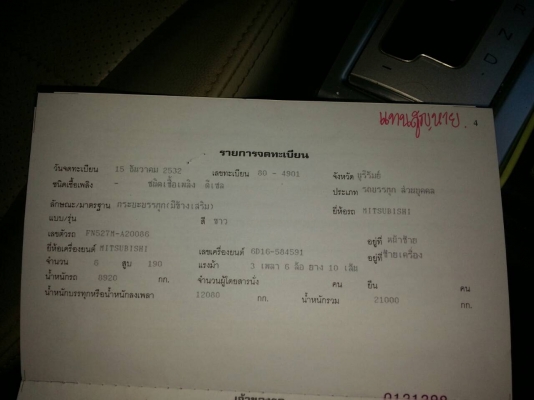 แทนสูญหาย
4
รายการจดทะเบียน
วันจดทะเบียน 15 ธันวาคม 2532 เลขทะเบียน 80 - 4901 จังหวัด บุรีรัมย์
ชนิดเชื้อเพลิง - ชนิดเชื้อเพลิง ดีเซล ประเภท รถบรรทุก ส่วนบุคคล
ลักษณะ/มาตรฐาน กระบะบรรทุก(มีข้างเสริม) ยี่ห้อรถ MITSUBISHI
แบบ/รุ่น สี ขาว
เลขตัวรถ FN527M-A20080 อยู่ที่
ยี่ห้อเครื่องยนต์ MITSUBISHI เลขเครื่องยนต์ 6D16-584591 อยู่ที่ ซ้ายเครื่อง
จำนวน 6 สูบ 190 แรงม้า 3 เพลา 6 ล้อ ยาง 10 เส้น
น้ำหนักรถ 8920 กก. จำนวนผู้โดยสารนั่ง คน ยืน คน
น้ำหนักบรรทุกหรือน้ำหนักลงเพลา 12080 กก. น้ำหนักรวม 21000 กก.